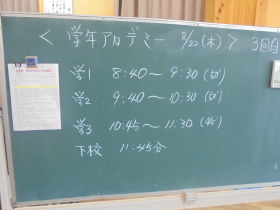 ＜学年アカデミー 8/22(木)＞ 3回目
学1 8:40～9:30(50)
学2 9:40～10:30(50)
学3 10:45～11:30(45)
下校 11:45分